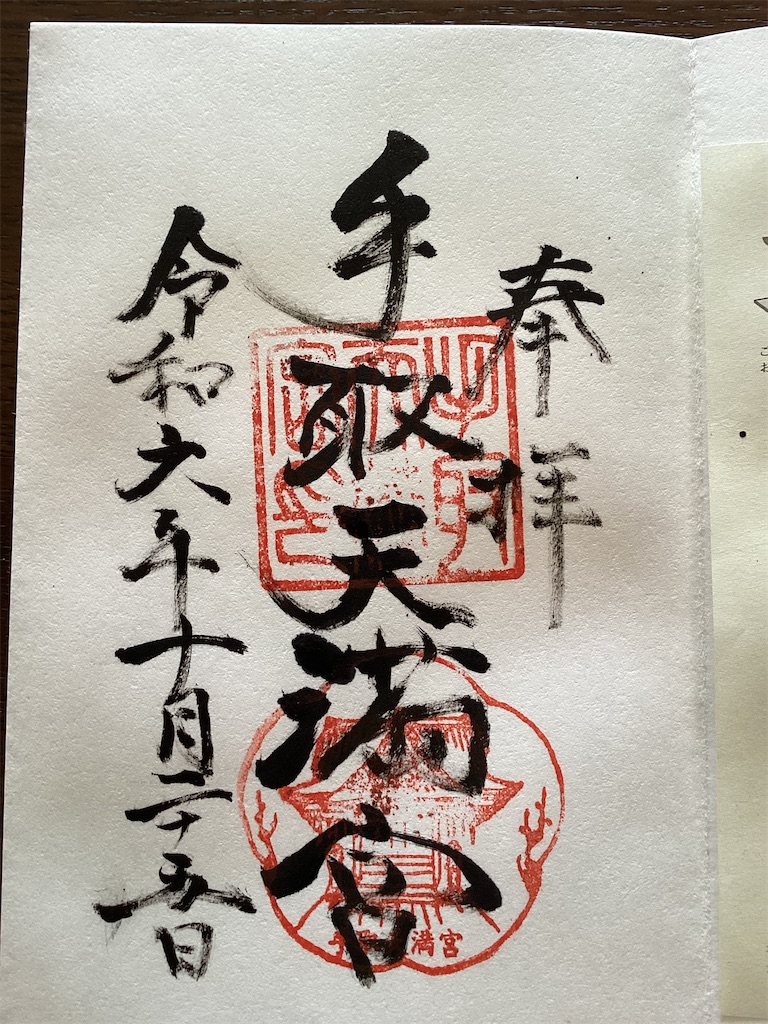 奉拝
手取天満宮
令和六年十月二十五日
満宮